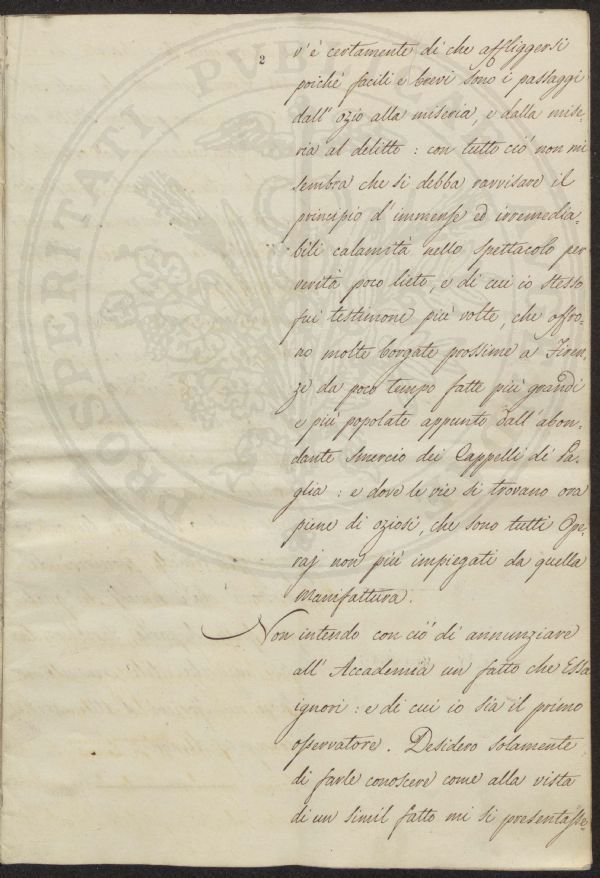 2
v'è certamente di che affliggersi
poiché facili e brevi sono i passaggi
dall' ozio alla miseria, e dalla mise,
ria al delitto : con tutto ció non mi
sembra che si debba ravvisare il
principio d'immense ed irremedia,
bili calamità nello spettacolo per
verità poco lieto, e di cui io stesso
fui testimone più volte, che offro,
no molte borgate prossime a Firen,
ze da poco tempo fatte più grandi
e più popolate appunto dall'abon,
dante smercio dei Cappelli di Pa,
glia : e dove le vie si trovano ora
piene di oziosi, che sono tutti Ope,
raj non più impiegati da quella
manifattura.
Non intendo con ció di annunziare
all' Accademia un fatto che Essa
ignori : e di cui io sia il primo
osservatore. Desidero solamente
di farle conoscere come alla vista
di un simil fatto mi si presentasse,
PROSPERITATI PUB